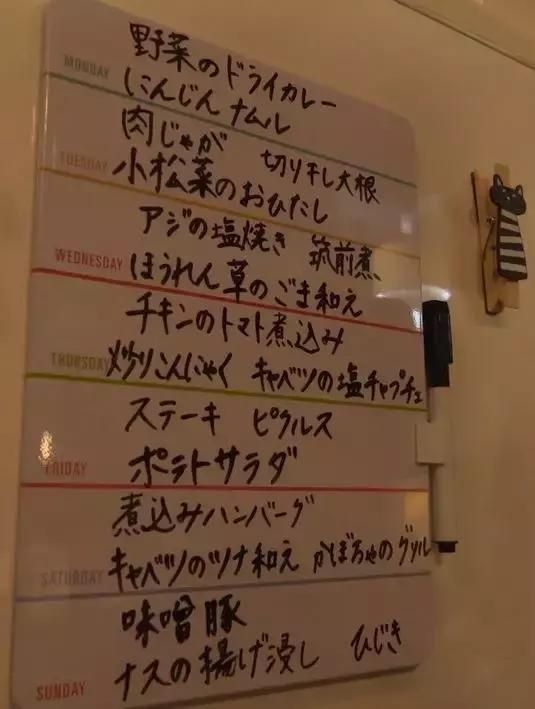 野菜のドライカレー
MONDAY
にんじんナムル
肉じゃが 切り干し大根
TUESDAY
小松菜のおひたし
アジの塩焼き 筑前煮
WEDNESDAY
ほうれん草のごま和え
チキンのトマト煮込み
THURSDAY
炒りこんにゃく キャベツの塩チャプチェ
ステーキ ピクルス
FRIDAY
ポテトサラダ
煮込みハンバーグ
SATURDAY
キャベツのツナ和え かぼちゃのグリル
味噌豚
SUNDAY
ナスの揚げ浸し ひじき